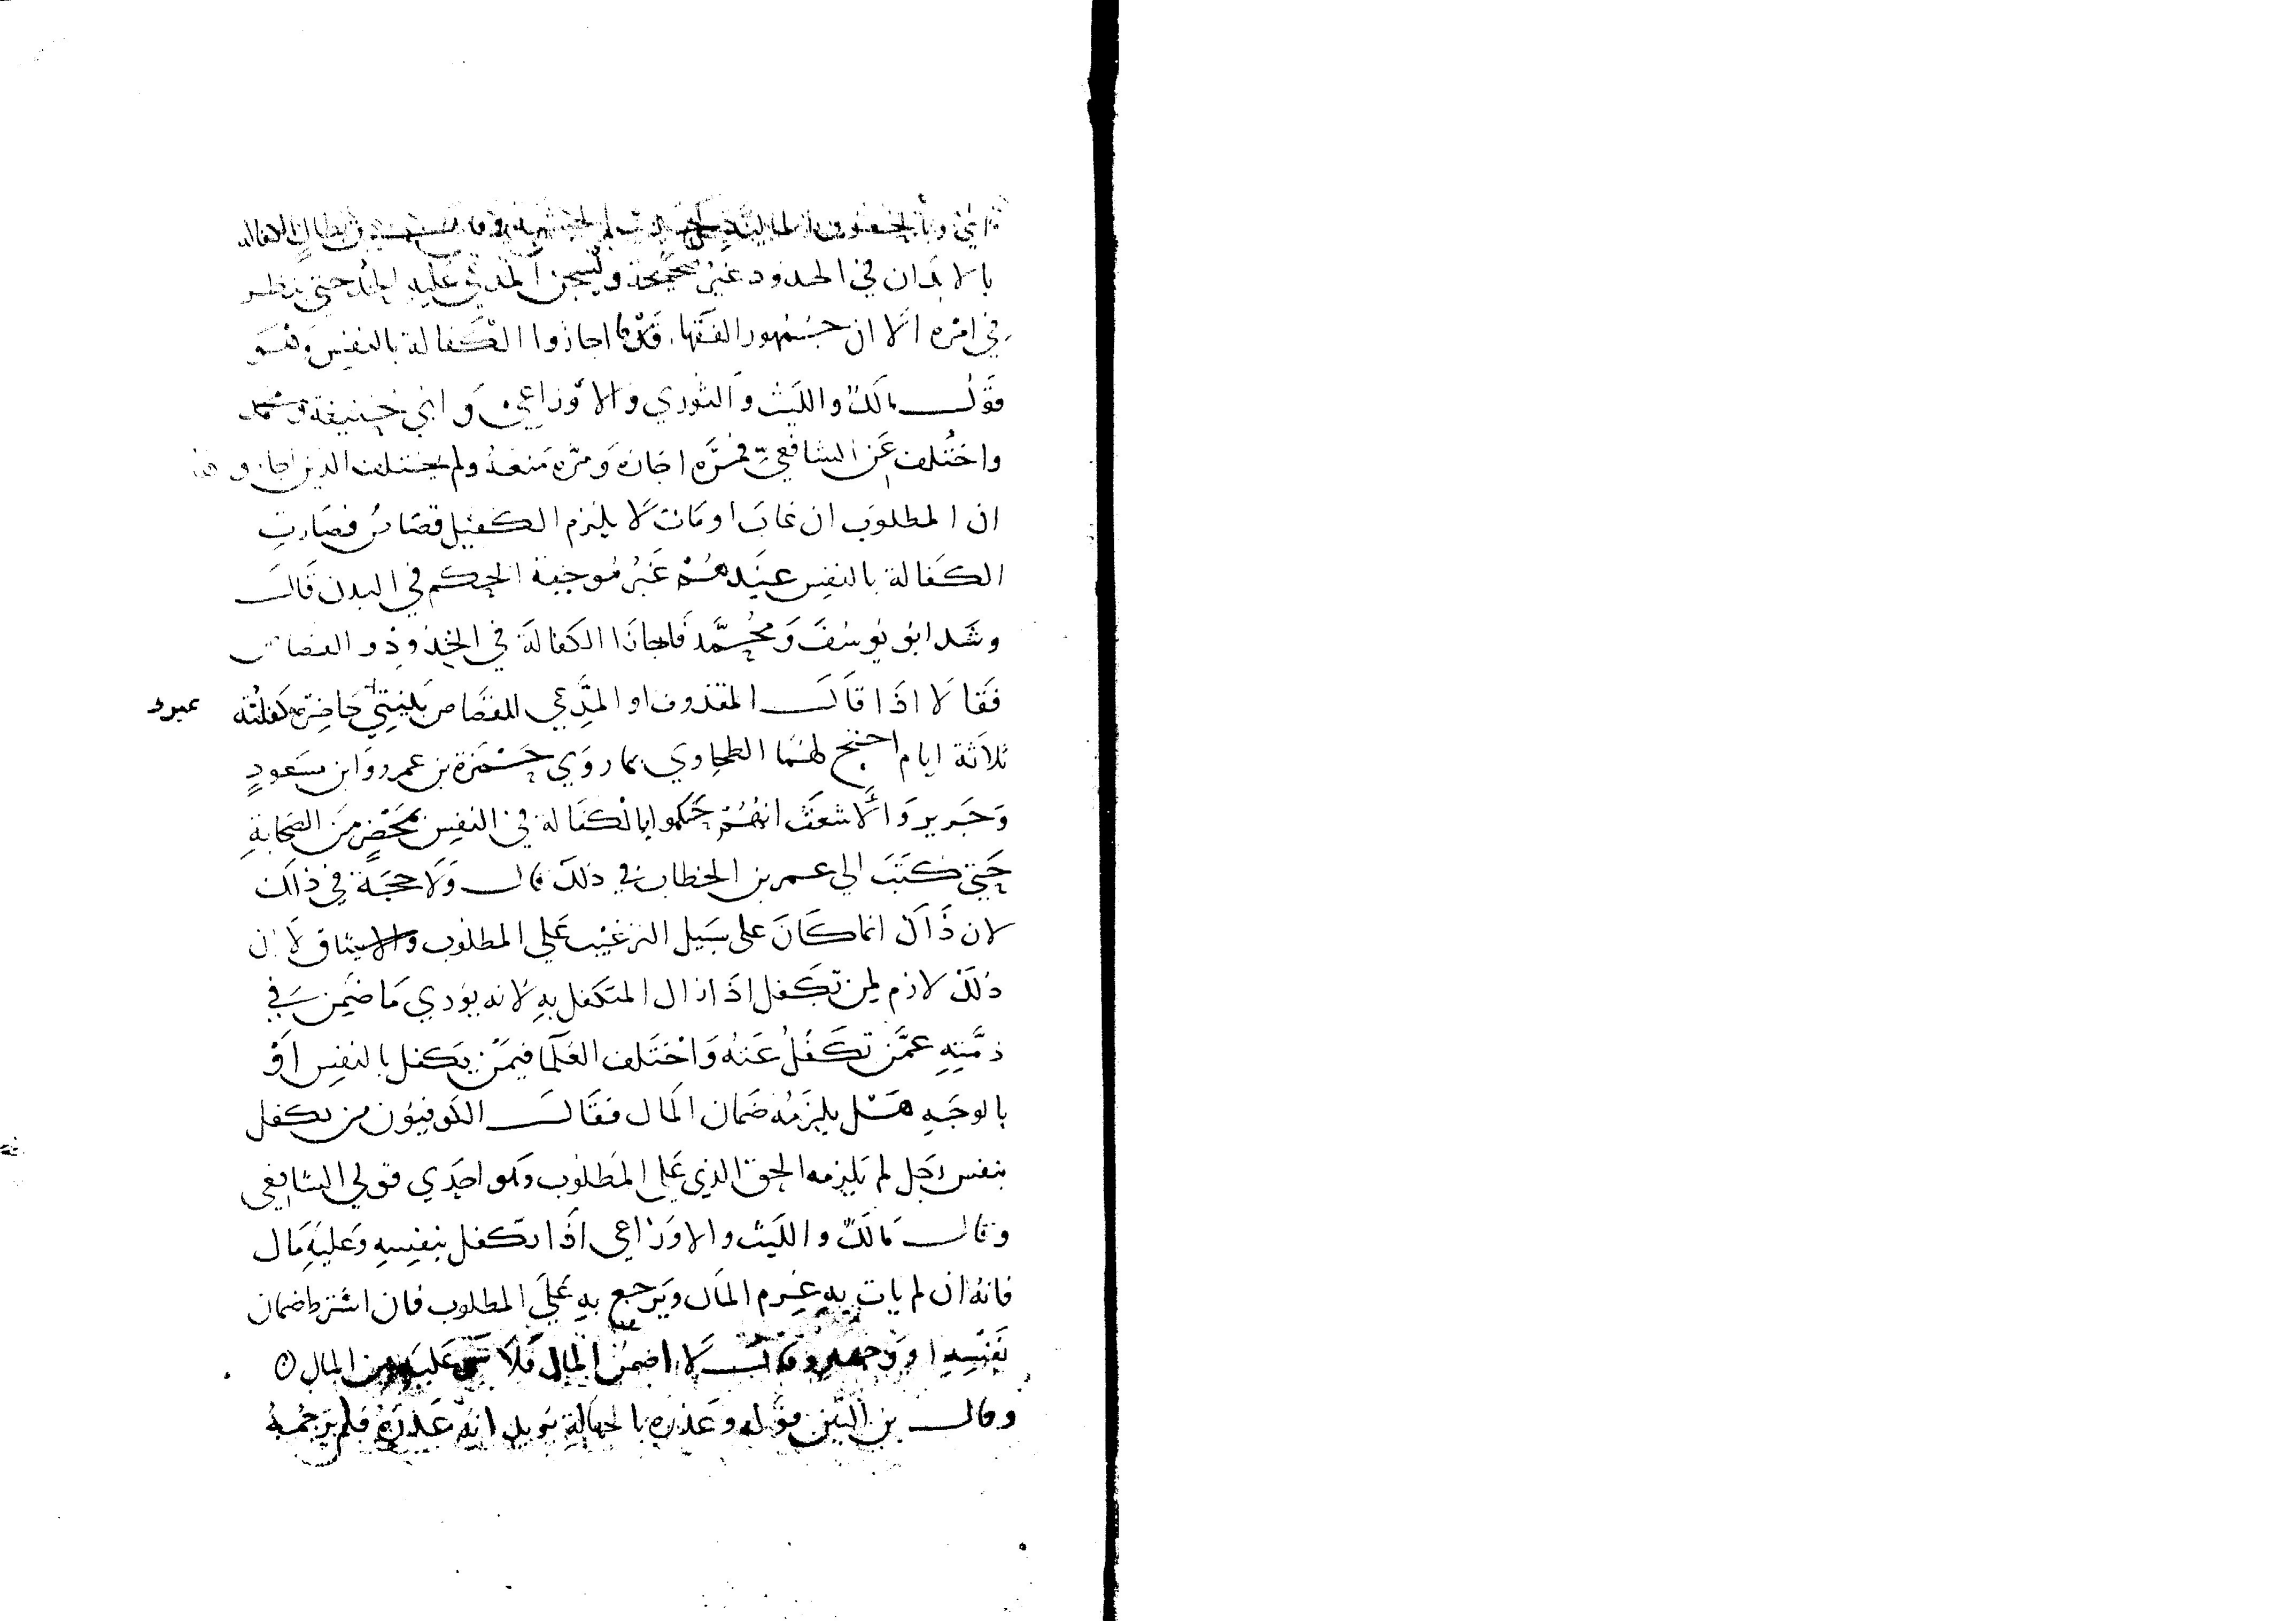 بالابدان في الحدود غير صحيحة ويسجن المدعي عليه الحد حتي ينظر
في امره الا ان جمهور الفقها اجازوا الكفالة بالنفس وهو
قول مالك والليث والثوري والاوزاعي وابي حنيفة ومحمد
واختلف عن الشافعي فمره اجازه ومره منعه ولم يختلف الذين اجازوها
ان المطلوب ان غاب او مات لا يلزم الكفيل قصاص فصارت
الكفالة بالنفس عندهم غير موجبة الحكم في البدن قال
وشد ابو يوسف ومحمد فاجازا الكفالة في الحدود والقصاص
فقالا اذا قال المقذوف او المدعي للقصاص بينتي حاضرة كفلته
ثلاثة ايام احتج لهما الطحاوي بما روي حمزة بن عمرو وابن مسعود
وجرير والاشعث انهم حكموا بالكفالة في النفس بمحضر من الصحابة
حتي كتب الي عمر بن الخطاب في ذلك قال ولا حجة في ذلك
لان ذلك انما كان على سبيل الترغيب علي المطلوب والاستيثاق لا ان
ذلك لازم لمن تكفل اذا زال المتكفل به لانه يؤدي ما ضمن في
ذمته عمن تكفل عنه واختلف العلما فيمن يكفل بالنفس او
بالوجه هل يلزمه ضمان المال فقال الكوفيون من تكفل
بنفس رجل لم يلزمه الحق الذي علي المطلوب وهو احدي قولي الشافعي
وقال مالك والليث والاوزاعي اذا تكفل بنفسه وعليه مال
فانه ان لم يات به غرم المال ويرجع به علي المطلوب فان اشترط ضمان
نفسه او وجهه وقال لا اضمن المال فلا شي عليه من المال
وقال بن التين قوله وعذره بالجهالة يريد انه عذره فلم يرجمه